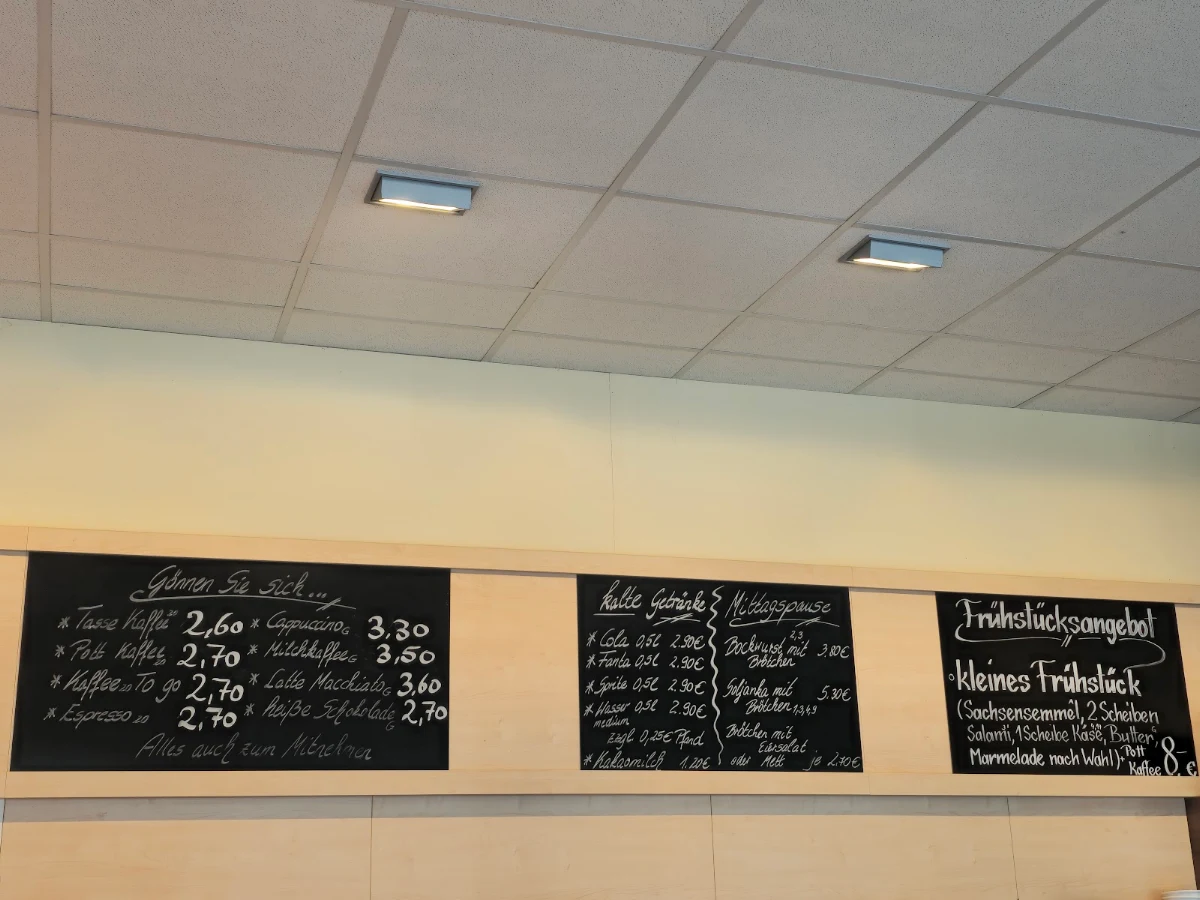 Gönnen Sie sich...
* Tasse Kaffee 2,60
* Pott Kaffee 2,70
* Kaffee To go 2,70
* Espresso 2,70
* Cappuccino G 3,30
* Milchkaffee G 3,50
* Latte Macchiato G 3,60
* heiße Schokolade G 2,70
Alles auch zum Mitnehmen
kalte Getränke
* Cola 0,5l 2.90€
* Fanta 0,5l 2.90€
* Sprite 0,5l 2.90€
* Wasser 0,5l 2.90€
medium
zzgl. 0,25€ Pfand
* Kakaomilch 1.20€
Mittagspause
Bockwurst 2,3 mit 3,80€
Brötchen
Soljanka mit 5,30€
Brötchen 1,3,4,9
Brötchen mit
Eiersalat
oder Mett je 2,70€
Frühstücksangebot
kleines Frühstück
(Sachsensemmel, 2 Scheiben
Salami, 1 Scheibe Käse, Butter,
Marmelade nach Wahl)+ Pott
Kaffee 8,- €